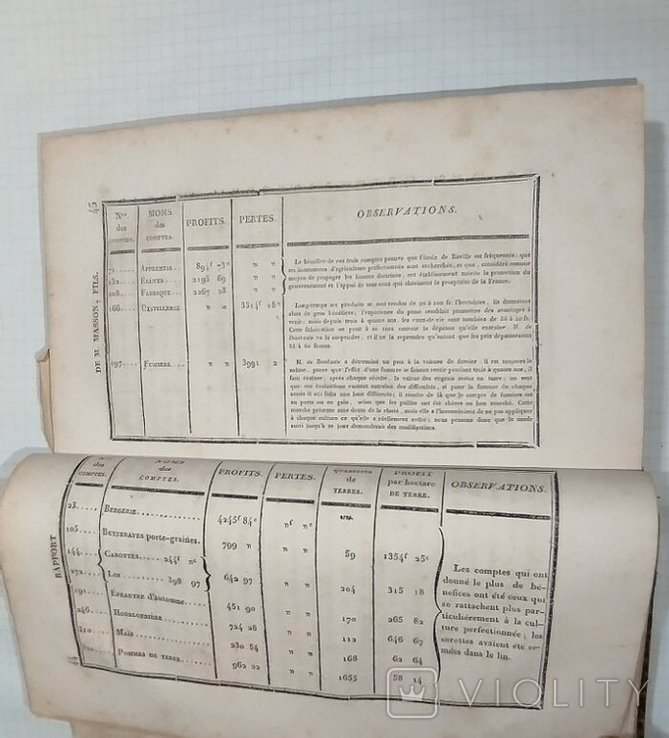 DE M. MASSON, FILS.
Nos. des COMPTES. NOMS des COMPTES. PROFITS. PERTES. OBSERVATIONS.
71 APPRENTIS. 894f 73c " "
132 ÉLÈVES 2196 69 " "
208 FABRIQUE. 2267 28 " "
Le bénéfice de ces trois comptes prouve que l'école de Roville est fréquentée; que
ses instrumens d'agriculture perfectionnés sont recherchés, et que, considéré comme
moyen de propager les bonnes doctrines, cet établissement mérite la protection du
gouvernement et l'appui de tous ceux qui chérissent la prospérité de la France.
166 DISTILLERIE " " 3314f 48c
Long-temps
alors de gros bénéfices; l'expérience du passé semblait promettre des avantages à
venir; mais depuis trois à quatre ans, les eaux-de-vie sont tombées de
Cette fabrication ne peut à ce taux couvrir la dépense qu'elle entraîne. M. de
Dombasle va la suspendre, et il ne la reprendra qu'autant que les prix dépasseraient
à 60 francs.
197 FUMIERS. " " 3991 2
M. de Dombasle a déterminé un prix à la voiture de fumier, il est toujours le
même, parce que l'effet d'une fumure se faisant sentir pendant trois à quatre ans, il
faut évaluer, après chaque récolte, la valeur des engrais restés en terre; on sent
que ces évaluations causent des difficultés, si pour la fumure de chaque
année il eût fallu une base différente; il résulte de là que le compte de fumiers est
en perte ou en gain, selon que les pailles ont été chères ou bon marché. Cette
marche présente sans doute de la clarté, mais elle a l'inconvénient de ne pas appliquer
à chaque culture ce qu'elle a réellement coûté; nous pensons donc que le mode
suivi jusqu'à ce jour demanderait des modifications.
RAPPORT
Nos des COMPTES. NOMS des COMPTES. PROFITS. PERTES. QUANTITÉS de TERRES. PROFIT par hectare DE TERRE. OBSERVATIONS.
23. BERGERIE. 4245f 84c "f "c
105. BETTERAVES porte-graines. 799 " " " 59 1354f 25c
144. CAROTTES. 244f "c
272. LIN 398 97 642 97 " " 204 315 18
191. ÉPEAUTRE d'automne. 451 90 " " 170 265 82
246. HOUBLONNIÈRE. 724 26 " " 112 646 67
210. MAÏS 230 54 " " 168 62 64
POMMES DE TERRE. 962 22 " " 1655 58 14
Les comptes qui ont
donné le plus de bé-
néfices ont été ceux qui
se rattachent plus par-
ticulièrement à la cul-
ture perfectionnée; les
carottes avaient été se-
mées dans le lin.
VIOLITY